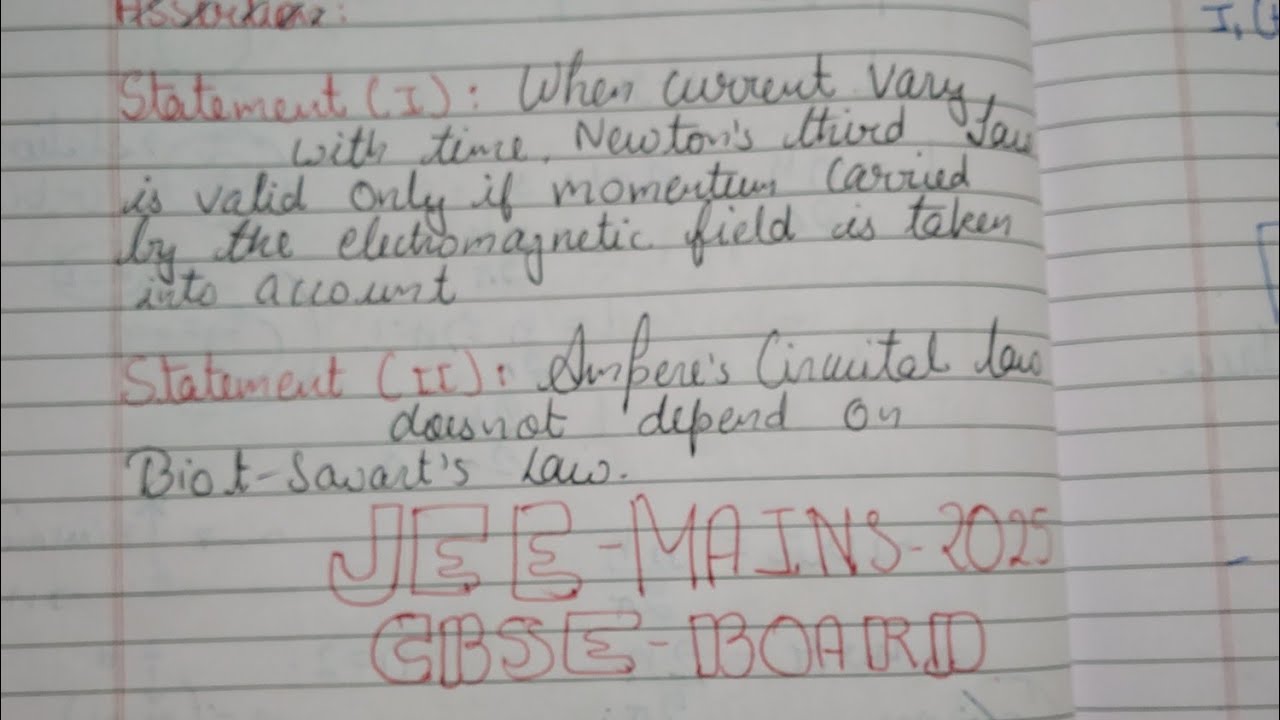 Assertion:
Statement (I): When current vary
with time, Newton's third law
is valid only if momentum carried
by the electromagnetic field is taken
into account
Statement (II): Ampere's Circuital law
doesnot depend on
Biot-Savart's Law.
JEE-MAINS-2025
CBSE-BOARD